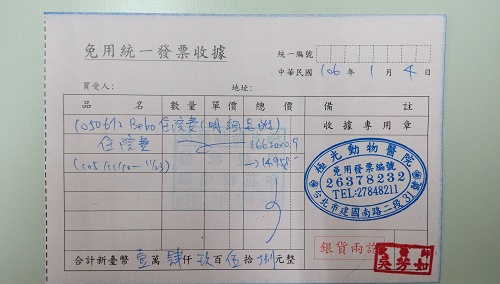 免用統一發票收據
統一編號
中華民國 106 年 1 月 4 日
買受人： 地址：
品名 數量 單價 總價 備註
1050672 Bobo 住院費
收據專用章
住院費 16620x0.9
(105/11/10~11/23) →14958
極光動物醫院
免用發票編號
26378232
TEL:27848211
台北市建國南路二段31號
銀貨兩訖
吳芳如
合計新臺幣 壹萬 肆仟 玖百 伍拾 捌元整